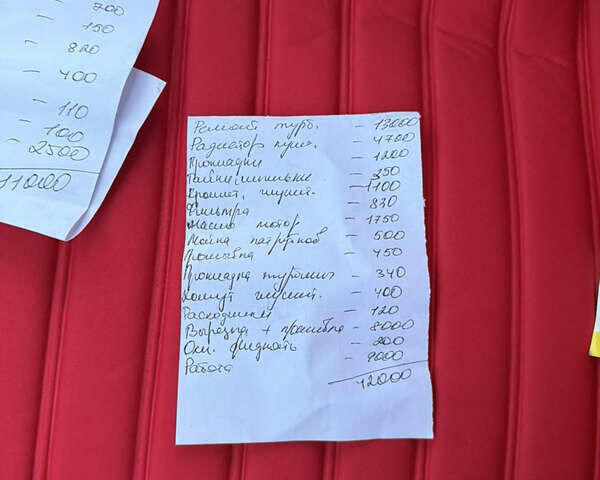 - 700
- 150
- 820
- 400
- 110
- 100
- 2500
11000
Ремонт турб. - 13000
Радиатор - 4700
Прокладки - 1200
Гайки шпильки - 350
- 1100
Фильтра - 830
Масло мотор - 1750
Мойка патрубков - 500
Промывка - 450
Прокладка - 340
Хомут глушит. - 400
Расходники - 120
Вырезка + прошивка - 8000
Охл. жидкость - 800
Работа - 9000
42000